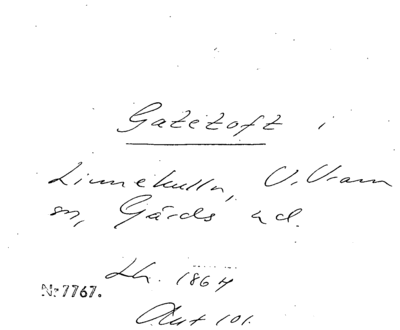 Gatetoft i
Linnekulla, V. Vram
sn, Gärds hd.
Lh. 1864
Nr 7767.
Akt 101.